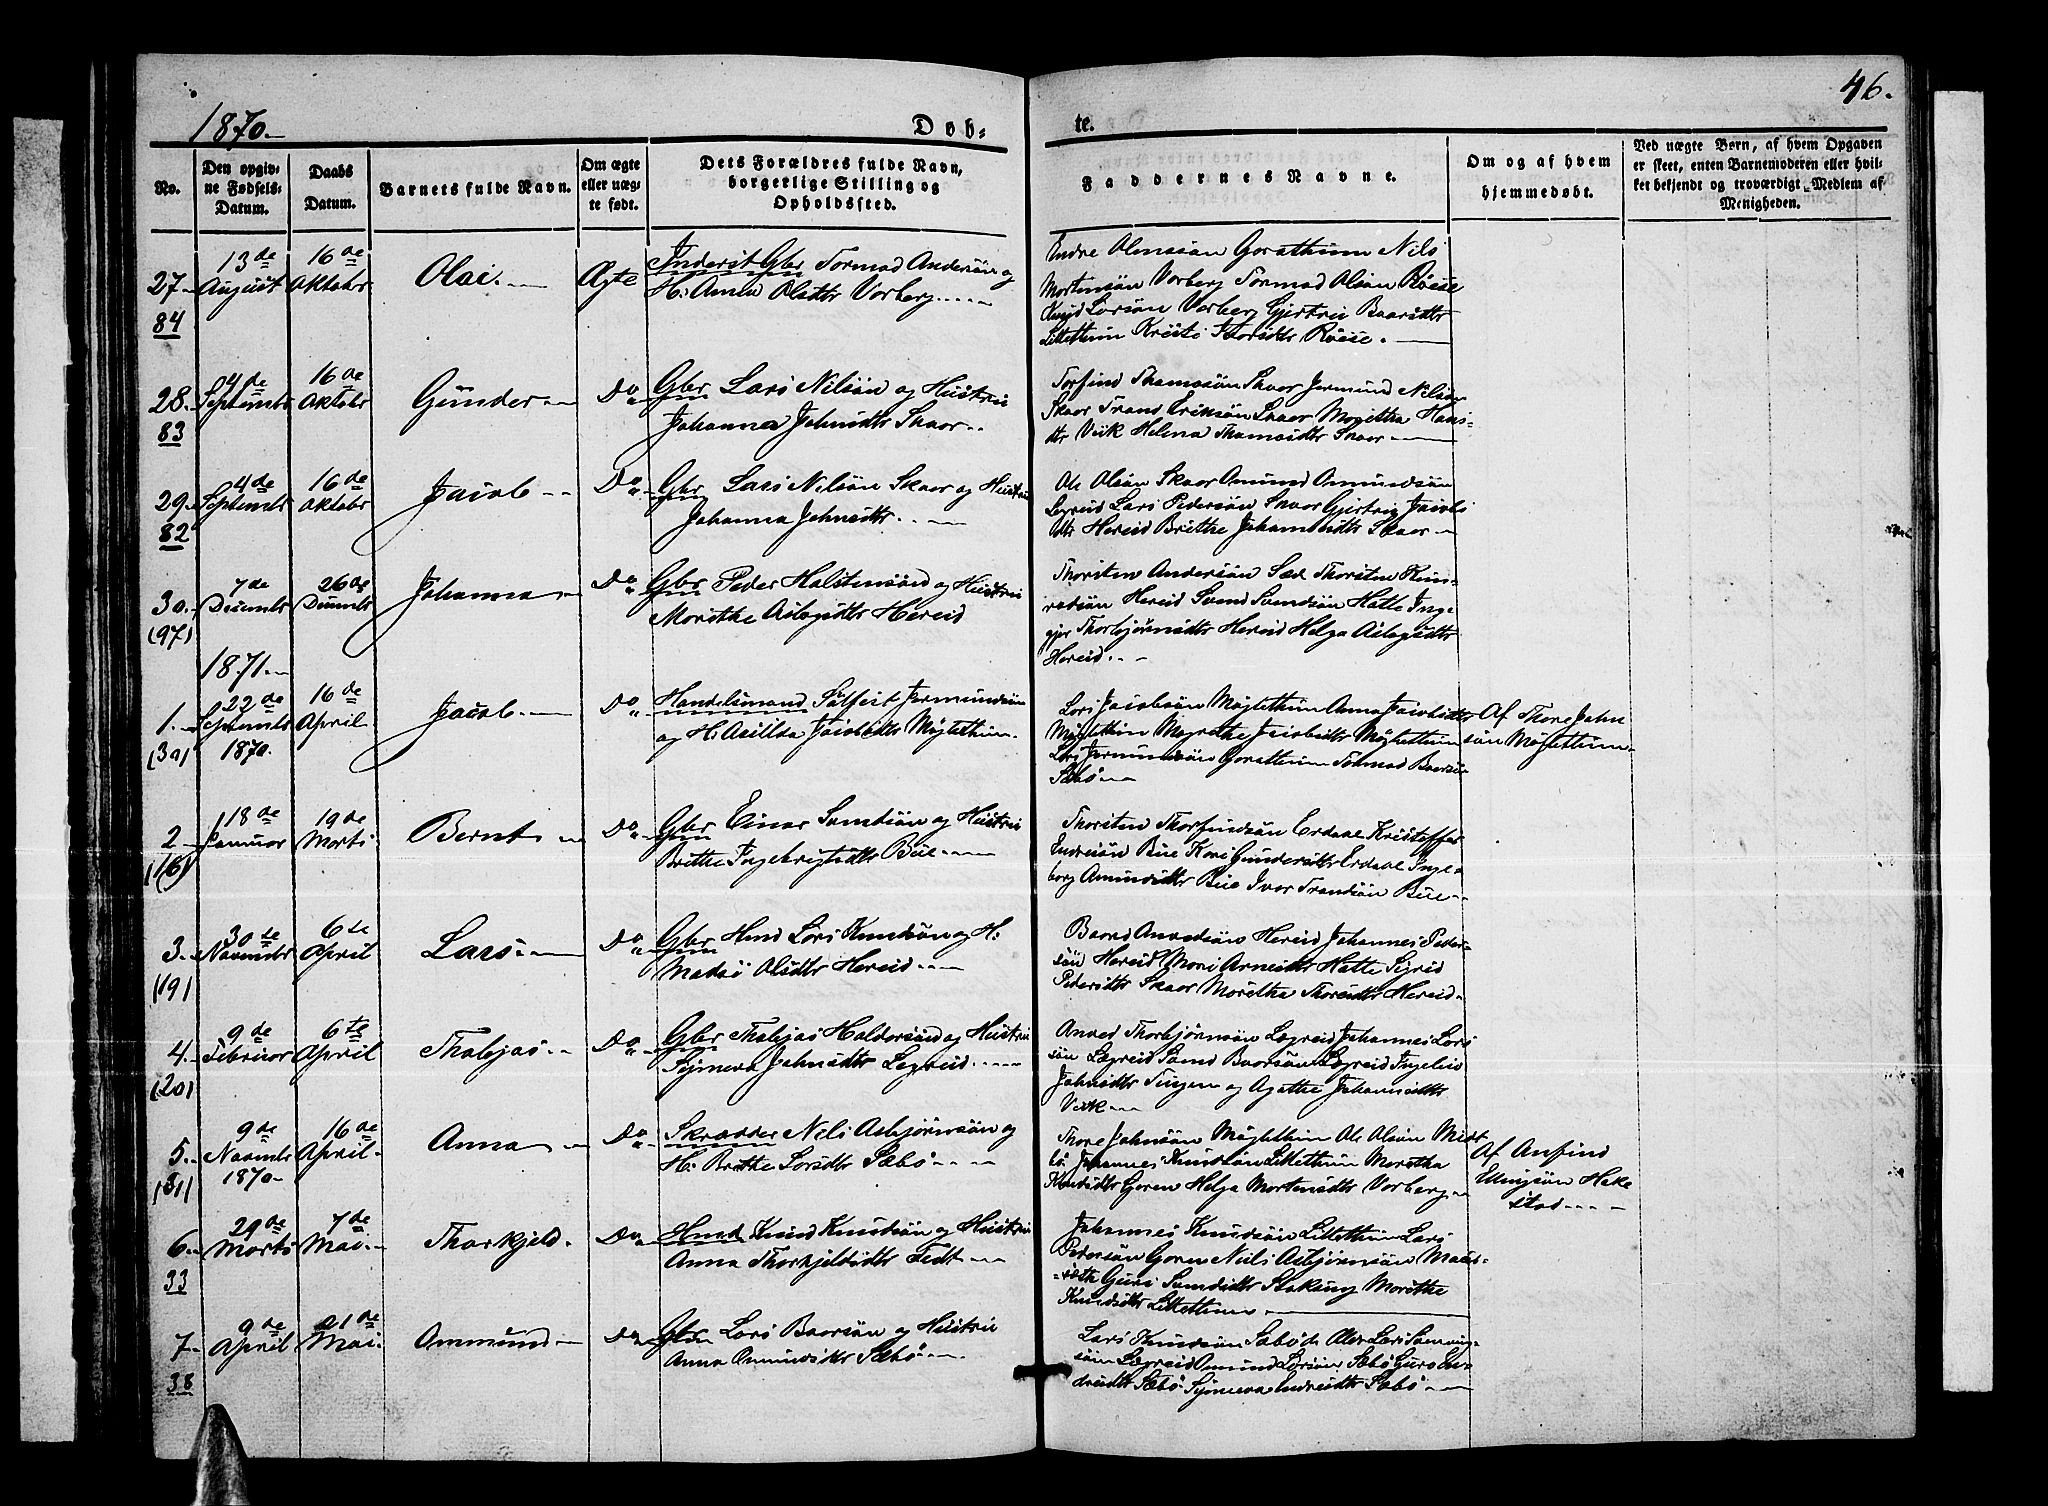 46.
1870.-
Døb-
te.
No.
Den opgiv-
ne Fødsels-
Datum.
Daabs
Datum.
Barnets fulde Navn.
Om ægte
eller uæg-
te født.
Dets Forældres fulde Navn,
borgerlige Stilling og
Opholdssted.
Faddernes Navne.
Om og af hvem
hjemmedøbt.
Ved uægte Børn, af hvem Opgaven
er skeet, enten Barnemoderen eller hvil-
ket bekjendt og troværdigt Medlem af
Menigheden.
27
84
13de
August
16de
Oktobr
Olai.
Ægte
Inderst Gbr Tormod Andersön og
H: Anna Olsdtr Vorberg
Endre Olensön Gorathum Nils
Mortensön Vorberg Tormod Olsön Röise
Larsön Vorberg Gjertrü Baarsdtr
Litlethun Kristi Röise.
28
83
4de
Septembr
16de
Oktobr
Gunder
Do
Gbr Lars Nilsön og Hüstrü
Johanna Johnsdtr Skaar
Torfind Thomasön Skaar Jermund Nilsön
Skaar Trond Eriksön Skaar Margretha Hans-
dtr Viik Helena Thomasdtr Skaar
29
82
4de
Septembr
16de
Oktobr
Jacob
Do
Gbr Lars Nilsön Skaar og Hüstrü
Johanna Johnsdtr.
Ole Olsön Skaar Omund Omundsön
Legreid Lars Pedersön Skaar Gjertrü Jacobs
dtr Hereid Brithe Johannesdtr Skaar
30.
(97)
7de
Desembr
26de
Desembr
Johanna
Do
Gbr Peder Halstensönd og Hüstrü
Morithe Aslagsdtr Hereid
Thorsten Andersön Sæd Thorsten Kun-
ratsön Hereid Svend Svendsön Hatle Inge
gjer Thorbjörnsdtr Hereid Helga Aslagsdtr
Hereid.
1871.
1.
(30)
22de
Septembr
1870.
16de
April
Jacob
Do
Handelsmand Sülfest Jermundsön
og H: Asillda Jacobsdtr Mögletthun.
Lars Jacobsön Mögletthun Anna Jacobsdtr
Mögletthun Magrethe Jacobsdtr Mögletthun
Lars Jermundsön Gorathum Tormod Baarsön
Sæbö
Af Thore John
sön Mögletthun
2
(18)
18de
Januar
19de
Marts
Bernt
Do
Gbr Einar Svendsön og Hüstrü
Brithe Ingebrigtsdtr Büe
Thorsten Thorfindsön Erdaal Kristoffer
Endresön Büe Kari Gundersdtr Erdaal Inge-
borg Amundsdtr Büe Ivar Trondsön Büe
3.
(19)
30te
Novembr
6te
April
Lars
Do
Gbr Hmd Lars Knudsön og H:
Madsö Olsdtr Hereid
Baard Anvedsön Hereid Johannes Peder-
sön Hereid Mari Arnesdtr Hatle Sigrid
Pedersdtr Skaar Moretha Thoresdtr Hereid
4.
(20)
9de
Februar
6te
April
Thobjas
Do
Gbr Thobjas Haldorsönd og Hüstrü
Synneva Johnsdtr Legreid
Anved Thorbjörnsön Legreid Johannes Lars
sön Legreid Svend Baarsön Legreid Ingeleiv
Johnsdtr Tvejten og Agathe Johannesdtr
Viik
5.
(31)
9de
Novembr
1870
16de
April
Anna
Do
Skrædder Nils Asbjörnsön og
H: Brithe Larsdtr Sæbö
Thore Johnsön Mögletthun Ole Olsön Midt
bö Johannes Knudsön Litlethun Moretha
Knudsdtr Goren Helga Mortensdtr Vorberg
Af Anfind
Ellingsön Hake
stad
6.
33
29de
Marts
7de
Mai
Thorkjeld.
Do
Hmd Knud Knudsön og Hüstrü
Anna Thorkjeldsdtr Fedt
Johannes Knudsön Litlethun Lars
Pedersön Goren Nils Asbjörnsön Maus-
säth Guri Svendsdtr Morethe
Knudsdtr Litlethun
7.
38
9de
April
21de
Mai
Ommund
Do
Gbr Lars Baarsön og Hüstrü
Anna Omundsdtr Sæbö
Lars Knudsön Sæbö Lars
sön Legreid Omund Larsön Sæbö Guro En-
dresdtr Sæbö Synneva Endresdtr Sæbö